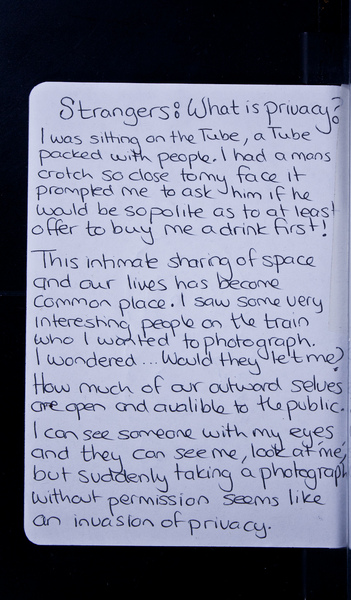 Strangers: What is privacy?
I was sitting on the Tube, a Tube
packed with people. I had a mans
crotch so close to my face it
prompted me to ask him if he
would be so polite as to at least
offer to buy me a drink first!
This intimate sharing of space
and our lives has become
common place. I saw some very
interesting people on the train
who I wanted to photograph.
I wondered... Would they let me?
How much of our outward selves
are open and avalible to the public.
I can see someone with my eyes
and they can see me, look at me,
but suddenly taking a photograph
without permission seems like
an invasion of privacy.